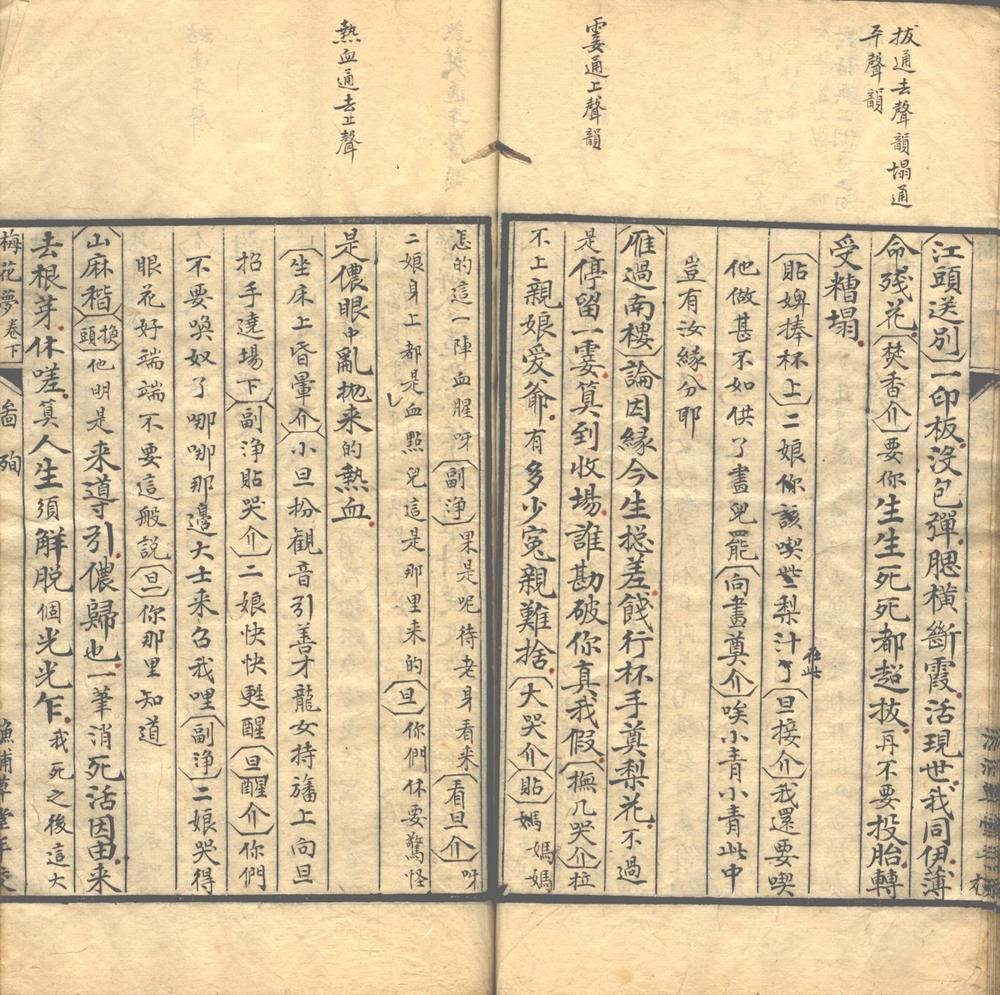 拔通去聲韻塌通
平聲韻
霎通上聲韻
江頭送別一印板沒包彈腮橫斷霞活現世我同伊薄
命残花焚香介要你生生死死都超拔再不要投胎轉
受糟塌
貼婢捧杯上二娘你該喫些梨汁了在此旦接介我還要喫
他做甚不如供了畫兒罷向畫奠介唉小青小青此中
豈有汝緣分耶
雁過南樓論因緣今生搃差餞行杯手奠梨花不過
是停留一霎算到收場誰勘破你真我假撫几哭介粒
不上親娘爱爺有多少寃親難捨大哭介貼媽媽媽
熱血通去上聲
怎的這一陣血腥呀副淨果是呢待老身看来看旦介呀
二娘身上都是血點兒這是那里来的旦你們休要驚怪
是儂眼中亂抛来的熱血
坐床上昏暈介小旦扮觀音引善才龍女持旛上向旦
招手遶場下副淨貼哭介二娘快快甦醒旦醒介你們
不要喚奴了哪哪那邊大士来召我哩副淨二娘哭得
眼花好端端不要這般説旦你那里知道
山麻稭換頭他明是来導引儂歸也一筆消死活因由来
去根芽休嗟算人生須解脱個光光乍我死之後這大
梅花夢卷下 畵殉